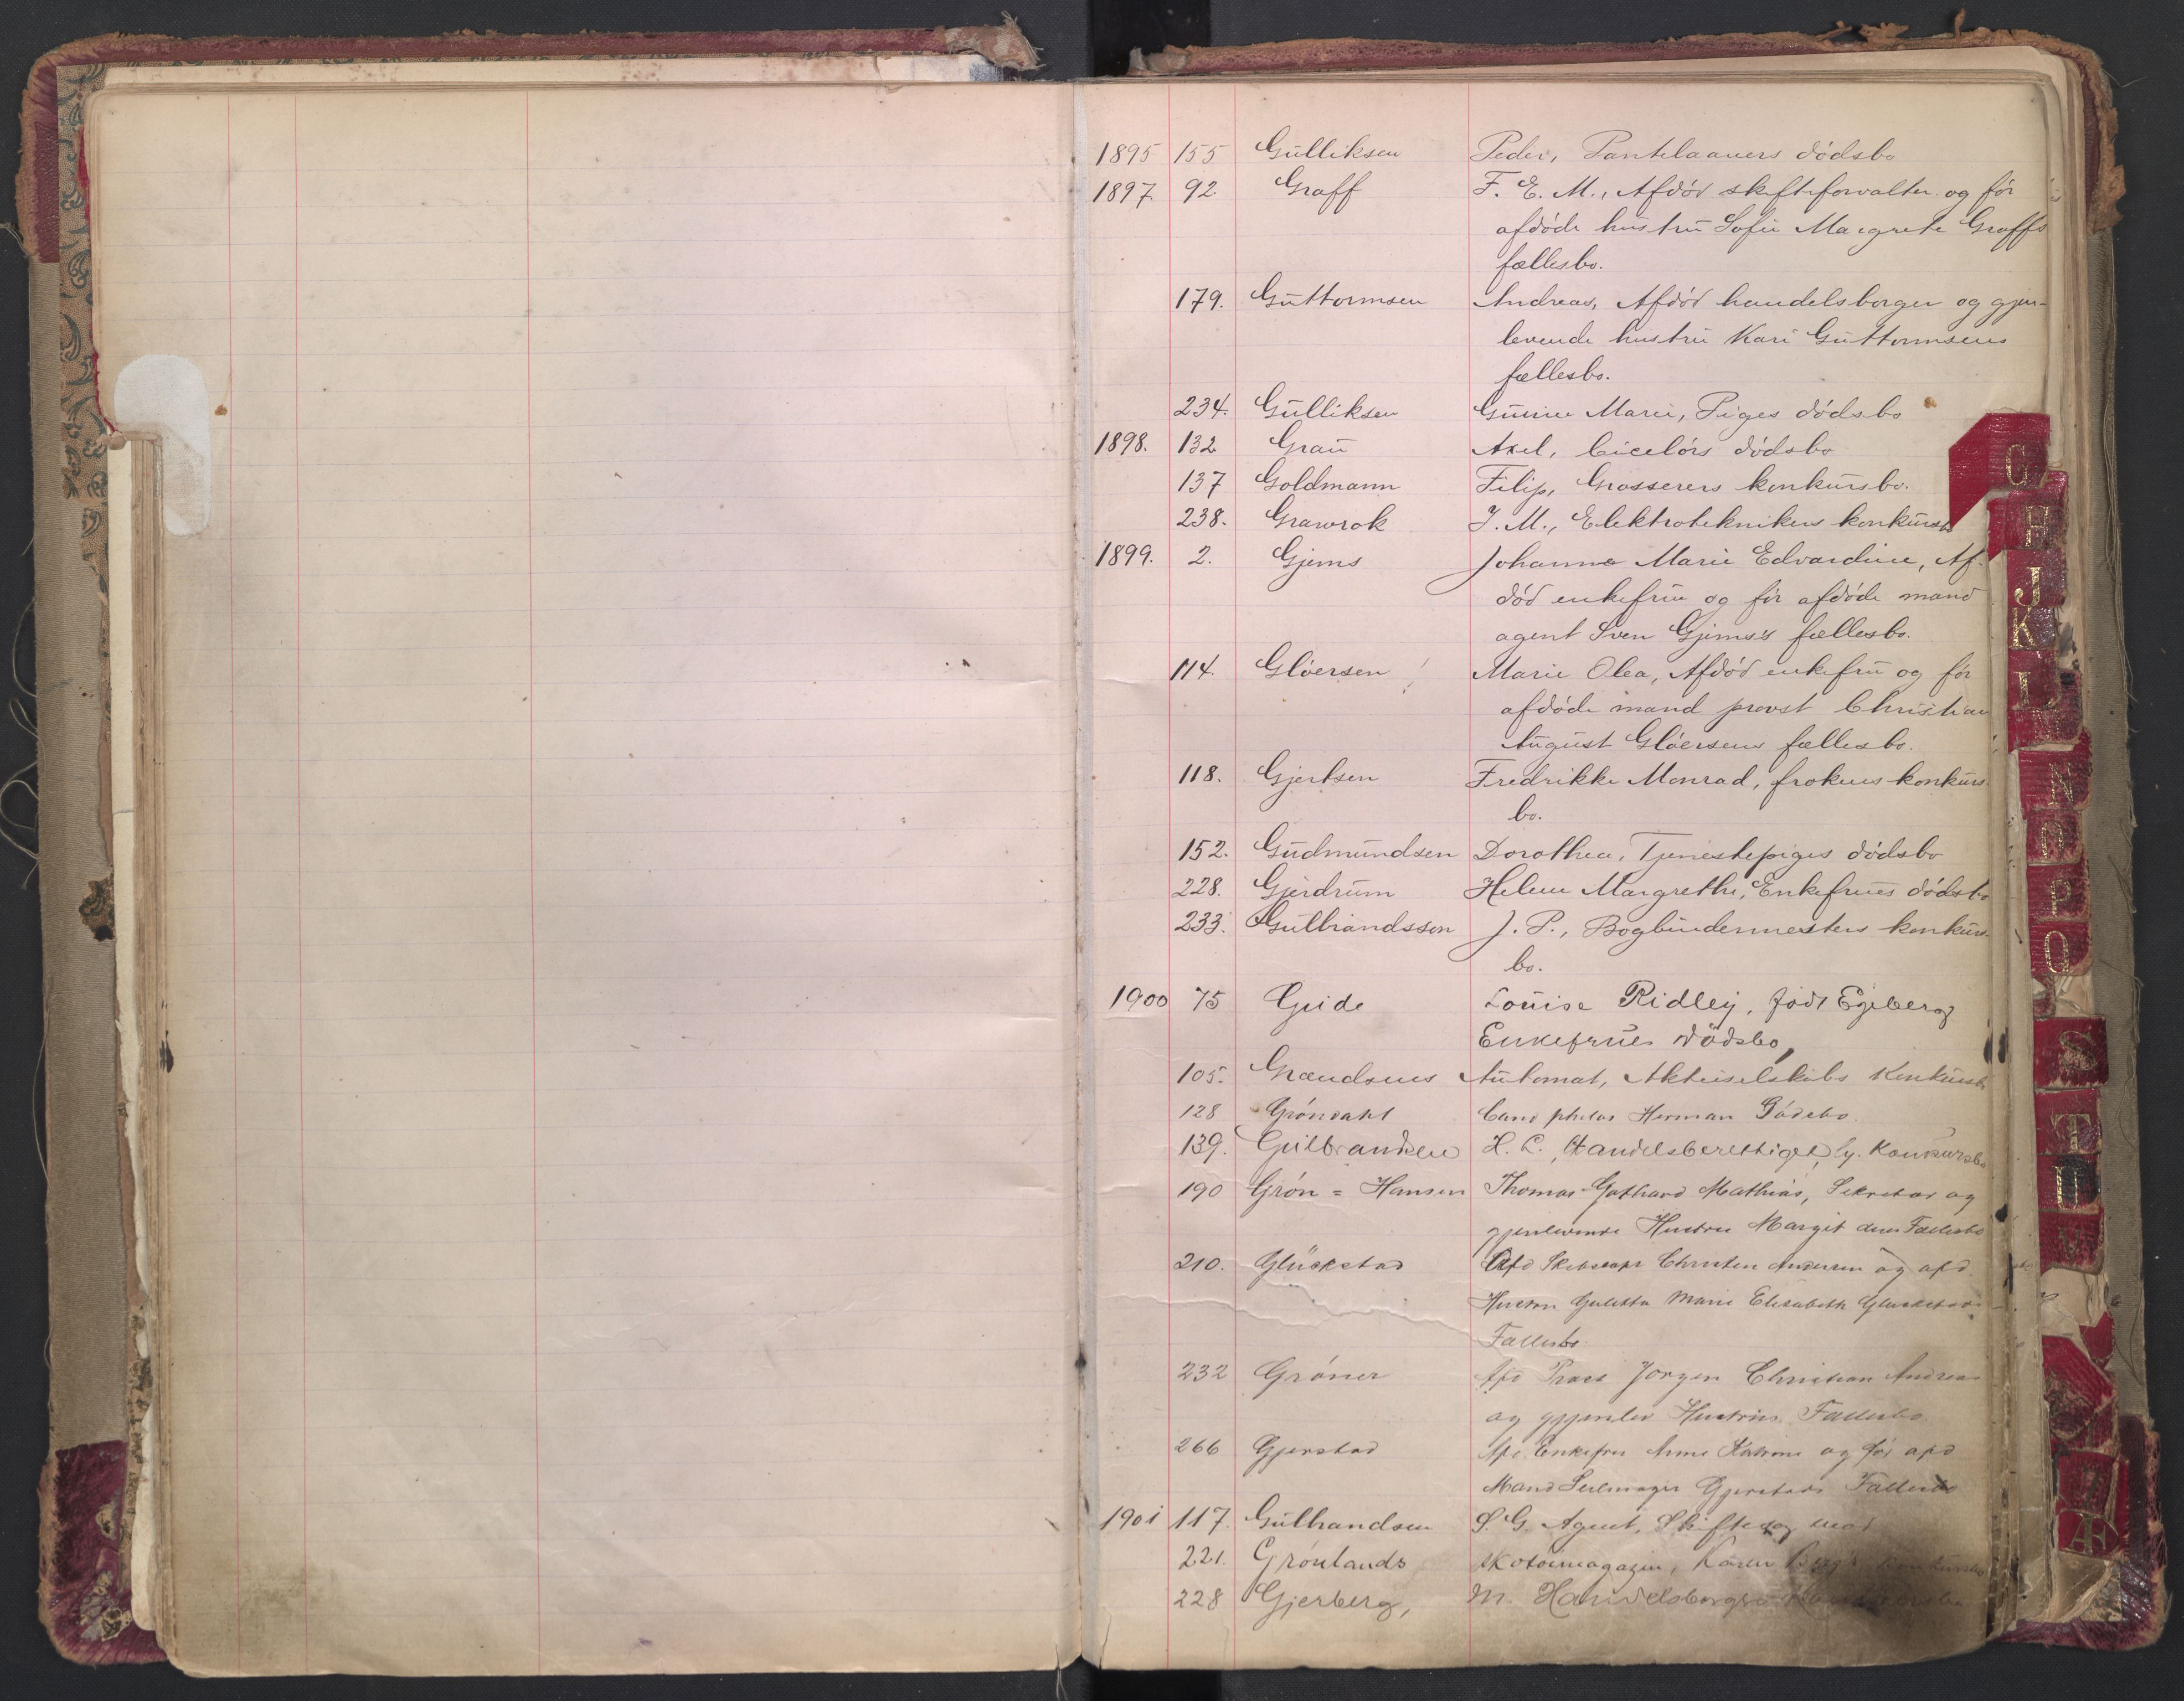 1895 155 Gulliksen Peder, Pantelaaners dødsbo
1897. 92. Graff F. E. M., Afdød skifteforvalter og før
afdøde hustru Sofie Margrete Graffs
fællesbo.
179. Guttormsen Andreas, Afdød handelsborger og gjen-
levende hustru Kari Guttormsens
fællesbo.
234. Gulliksen Gunine Marie, Piges dødsbo
1898. 132 Grau Axel, Cicelørs dødsbo
137 Goldmann Filip, Grosserers konkursbo.
238. Grawrok J. M., Elektroteknikers konkursbo
1899. 2. Gjems Johanne Marie Edvardine, Af-
død enkefrue og før afdøde mand
agent Sven Gjems's fællesbo.
114. Gløersen Marie Olea, Afdød enkefru og før
afdøde mand provst Christian
August Gløersens fællesbo.
118. Gjertsen Fredrikke Monrad, frøkens konkurs-
bo.
152. Gudmundsen Dorothea, Tjenestepiges dødsbo
228. Gjerdrum Helene Margrethe, Enkefrues dødsbo
233. Gulbrandsson J. P., Bogbindermesters konkurs-
bo.
1900 75 Gude Louise Ridley, født Egeberg
Enkefrues Dødsbo,
105. Grændsens Automat, Aktieselskabs Konkursbo
128 Grøndahl Cand philos Herman Dødsbo.
139. Gulbrandsen H. L., Handelsberettiget, Konkursbo
190 Grøn = Hansen Thomas Gothard Mathias, Sekretær og
gjenlevende Hustru Margit deres Fællesbo
210. Glückstad Afd Skibscapt Christen Andersen og afd
Hustru Juletta Marie Elisabeth Gluckstads
Fællesbo
232 Grøner Afd Jørgen Christian Andreas
og gjenlev Hustrus Fællesbo.
266 Gjerstad Afd. Enkefru Anne Katrine og før afd
Mand Seilmager Gjerstads Fællesbo
1901 117. Gulbrandsen S. G. Agent, Skifte og
221. Grønlands skotøimagazin, Karen Berg's konkursbo
228 Gjerberg, M. Handelsborger
G
H
J
K
L
N
O
P
Q
S
T
U
V
Æ